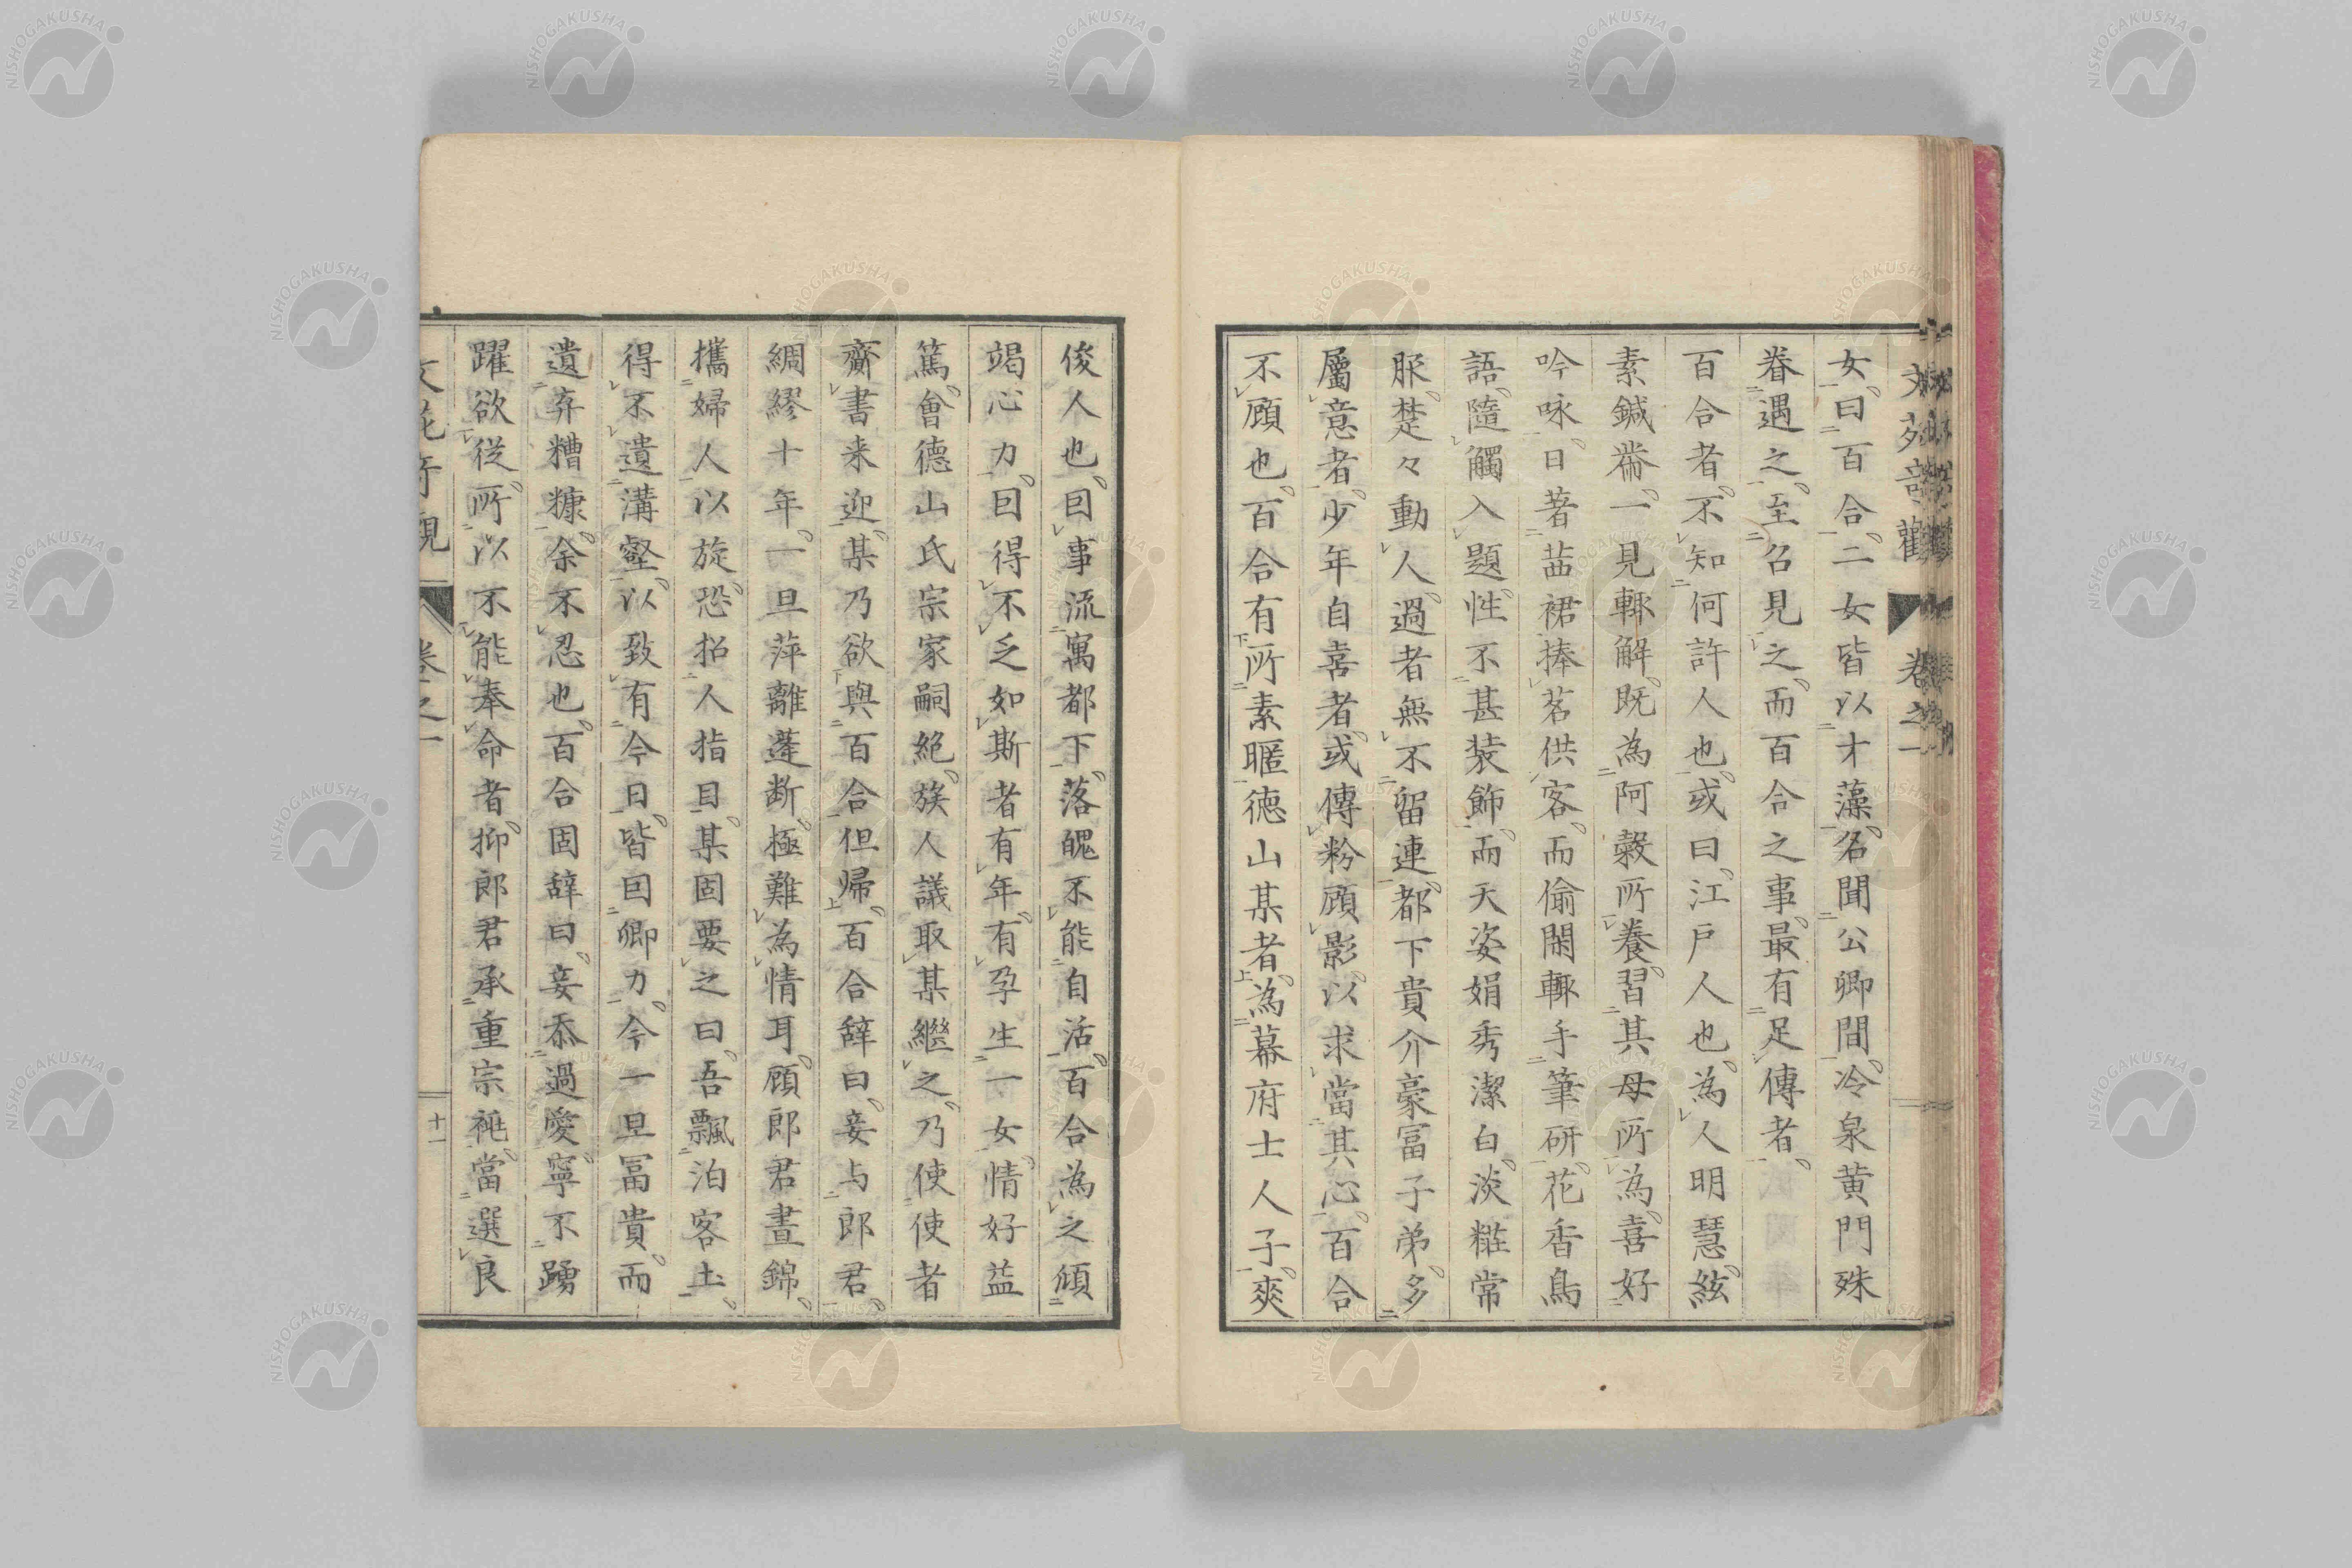 文苑奇觀 卷之一
女曰百合二女皆以才藻名聞公卿間冷泉黄門殊
眷遇之至召見之而百合之事最有足傳者
百合者不知何許人也或曰江戶人也為人明慧絃
素鍼黹一見輙解既為阿穀所養習其母所為喜好
吟咏日著茜裙捧茗供客而偷閑輙手筆研花香鳥
語隨觸入題性不甚装飾而天姿娟秀潔白淡糚常
服楚々動人過者無不留連都下貴介豪冨子弟多
屬意者少年自喜者或傳粉顧影以求當其心百合
不顧也百合有所素暱徳山某者為幕府士人子爽
俊人也囙事流寓都下落魄不能自活百合為之傾
竭心力囙得不乏如斯者有年有孕生一女情好益
篤會德山氏宗家嗣絶族人議取某繼之乃使使者
齎書来迎某乃欲與百合但帰百合辞曰妾与郎君
綢繆十年一旦萍離蓬断極難為情耳顧郎君晝錦
攜婦人以旋恐招人指目某固要之曰吾飄泊客土
得不遺溝壑以致有今日皆囙卿力今一旦冨貴而
遺弃糟糠余不忍也百合固辞曰妾忝過愛寧不踴
躍欲従所以不能奉命者抑郎君承重宗祧當選良
文苑奇觀 卷之一 十一
NISHOGAKUSHA